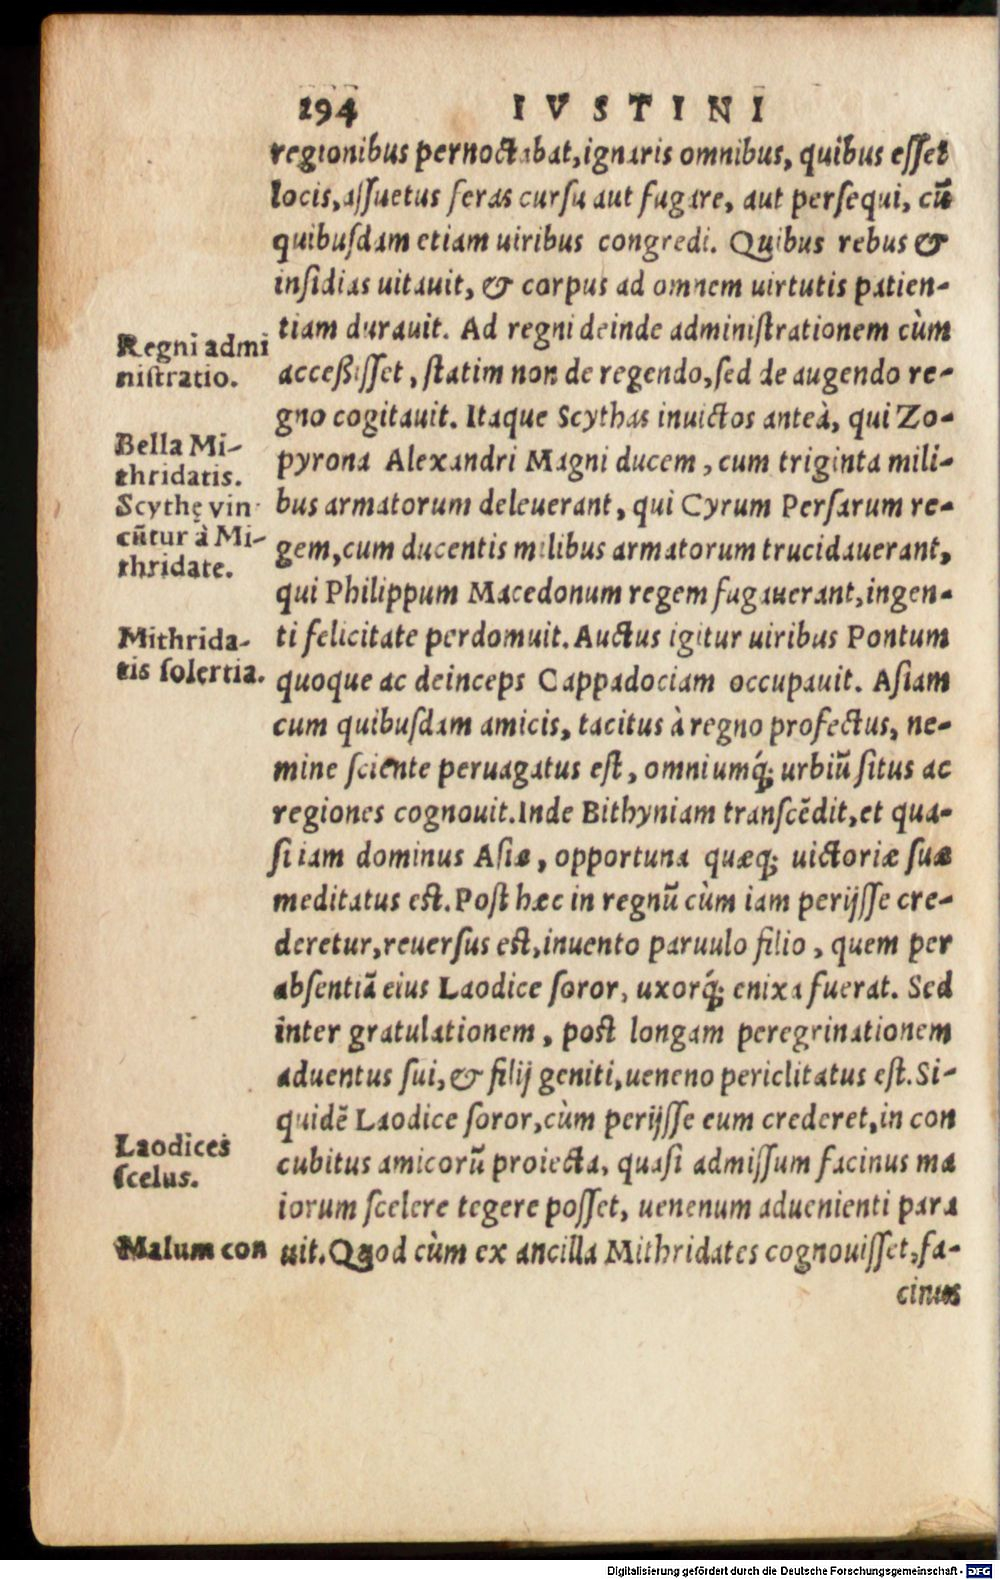 194 IVSTINI
regionibus pernoctabat,ignaris omnibus, quibus eſſet
locis,aſſuetus feras curſu aut fugare, aut perſequi, cū
quibuſdam etiam uiribus congredi. Quibus rebus &
inſidias uitauit, & corpus ad omnem uirtutis patien-
tiam durauit. Ad regni deinde adminiſtrationem cùm
acceßiſſet, ſtatim non de regendo,ſed de augendo re-
gno cogitauit. Itaque Scythas inuictos anteà, qui Zo-
pyrona Alexandri Magni ducem, cum triginta mili-
bus armatorum deleuerant, qui Cyrum Perſarum re-
gem,cum ducentis milibus armatorum trucidauerant,
qui Philippum Macedonum regem fugauerant,ingen-
ti felicitate perdomuit. Auctus igitur uiribus Pontum
quoque ac deinceps Cappadociam occupauit. Aſiam
cum quibuſdam amicis, tacitus à regno profectus, ne-
mine ſciente peruagatus eſt, omniumq́; urbiū ſitus ac
regiones cognouit.Inde Bithyniam tranſcēdit,et qua-
ſi iam dominus Aſiæ, opportuna quæq; uictoriæ ſuæ
meditatus eſt. Poſt hæc in regnū cùm iam perijſſe cre-
deretur,reuerſus eſt,inuento paruulo filio, quem per
abſentiā eius Laodice ſoror, uxorq́; enixa fuerat. Sed
inter gratulationem, poſt longam peregrinationem
aduentus ſui, & filij geniti,ueneno periclitatus eſt. Si-
quidē Laodice ſoror,cùm perijſſe eum crederet,in con
cubitus amicorū proiecta, quaſi admiſſum facinus ma
iorum ſcelere tegere poſſet, uenenum aduenienti para
uit. Quod cùm ex ancilla Mithridates cognouiſſet,fa-
cinus
Regni admi
niſtratio.
Bella Mi-
thridatis.
Scythę vin
cūtur à Mi-
thridate.
Mithrida-
tis ſolertia.
Laodices
ſcelus.
Malum con
Digitalisierung gefördert durch die Deutsche Forschungsgemeinschaft - DFG